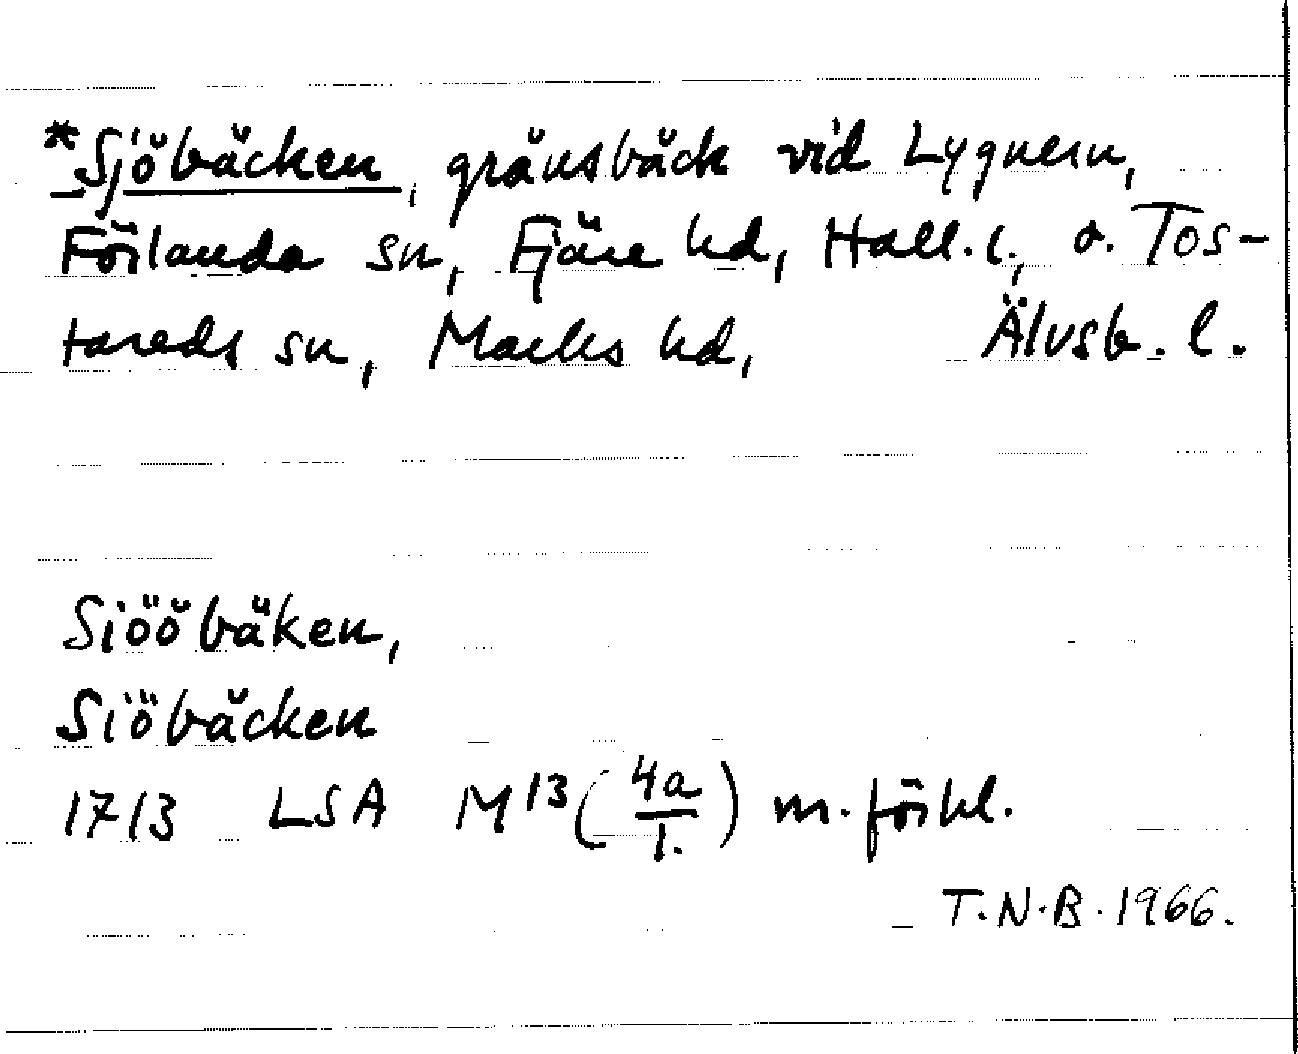 *Sjöbäcken, gränsbäck vid Lygnern,
Förlanda sn, Fjäre hd, Hall. l., o. Tos-
tareds sn, Marks hd, Älvsb. l.
Siööbäken,
Siöbäcken
1713 LSA M13 (4a/1.) m. förkl.
T.N.B. 1966.